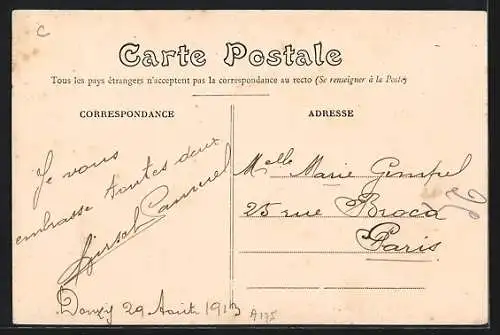 C
Carte Postale
Tous les pays étrangers n'acceptent pas la correspondance au recto (Se renseigner à la Poste)
CORRESPONDANCE
ADRESSE
Je vous
embrasse toutes deux
Melle Marie Gempel
25 rue Broca
Paris
Donzy 29 Août 1913
A175